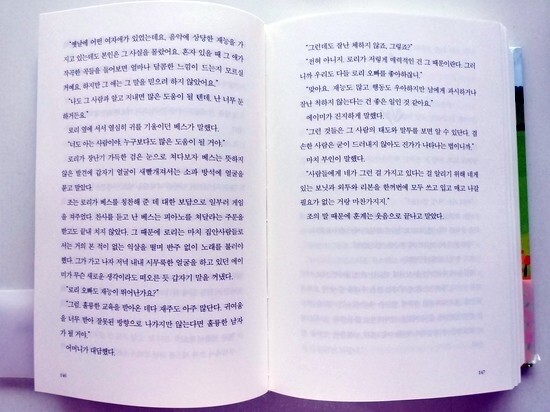 "옛날에 어떤 여자애가 있었는데요, 음악에 상당한 재능을 가지
고 있는데도 본인은 그 사실을 몰랐어요. 혼자 있을 때 그 애가
작곡한 곡들을 들어보면 얼마나 달콤한 느낌이 드는지 모르실
거예요. 하지만 그 애는 그 말을 믿으려 하지 않았어요."
"나도 그 사람과 알고 지내면 많은 도움이 될 텐데, 난 너무 둔
하거든요."
로리 옆에 서서 열심히 귀를 기울이던 베스가 말했다.
"너도 아는 사람이야, 누구보다도 많은 도움이 될 거야."
로리가 장난기 가득한 검은 눈으로 쳐다보자 베스는 뜻하지
않은 발견에 갑자기 얼굴이 새빨개져서는 소파 방석에 얼굴을
묻고 말았다.
조는 로리가 베스를 칭찬해 준 데 대한 보답으로 일부러 게임
을 져주었다. 찬사를 듣고 난 베스는 피아노를 쳐달라는 주문을
받고도 끝내 치지 않았다. 그 때문에 로리는 마치 집안사람들로
서는 거의 본 적이 없는 익살을 떨며 반주 없이 노래를 불러야
했다. 그가 가고 나자 저녁 내내 시무룩한 얼굴을 하고 있던 에이
미가 무슨 새로운 생각이라도 떠오른 듯 갑자기 말을 꺼냈다.
"로리 오빠도 재능이 뛰어난가요?"
"그럼, 훌륭한 교육을 받아온 데다 재주도 아주 많단다. 귀여움
을 너무 받아 잘못된 방향으로 나가지만 않는다면 훌륭한 남자
가 될 거야."
어머니가 대답했다.
146
"그런데도 잘난 체하지 않죠, 그렇죠?"
"전혀 아니지. 로리가 저렇게 매력적인 건 그 때문이란다. 그러
니까 우리도 다들 로리 오빠를 좋아하잖니."
"맞아요. 재능도 많고 행동도 우아하지만 남에게 과시하거나
잘난 척하지 않는다는 건 좋은 일인 것 같아요."
에이미가 진지하게 말했다.
"그런 것들은 그 사람의 태도와 말투를 보면 알 수 있단다. 겸
손한 사람은 굳이 드러내지 않아도 진가가 나타나는 법이니까."
마치 부인이 말했다.
"사람들에게 네가 그런 걸 가지고 있다는 걸 알리기 위해 네게
있는 보닛과 외투와 리본을 한꺼번에 모두 쓰고 입고 매고 나갈
필요가 없는 거랑 마찬가지지."
조의 말 때문에 훈계는 웃음으로 끝나고 말았다.
147